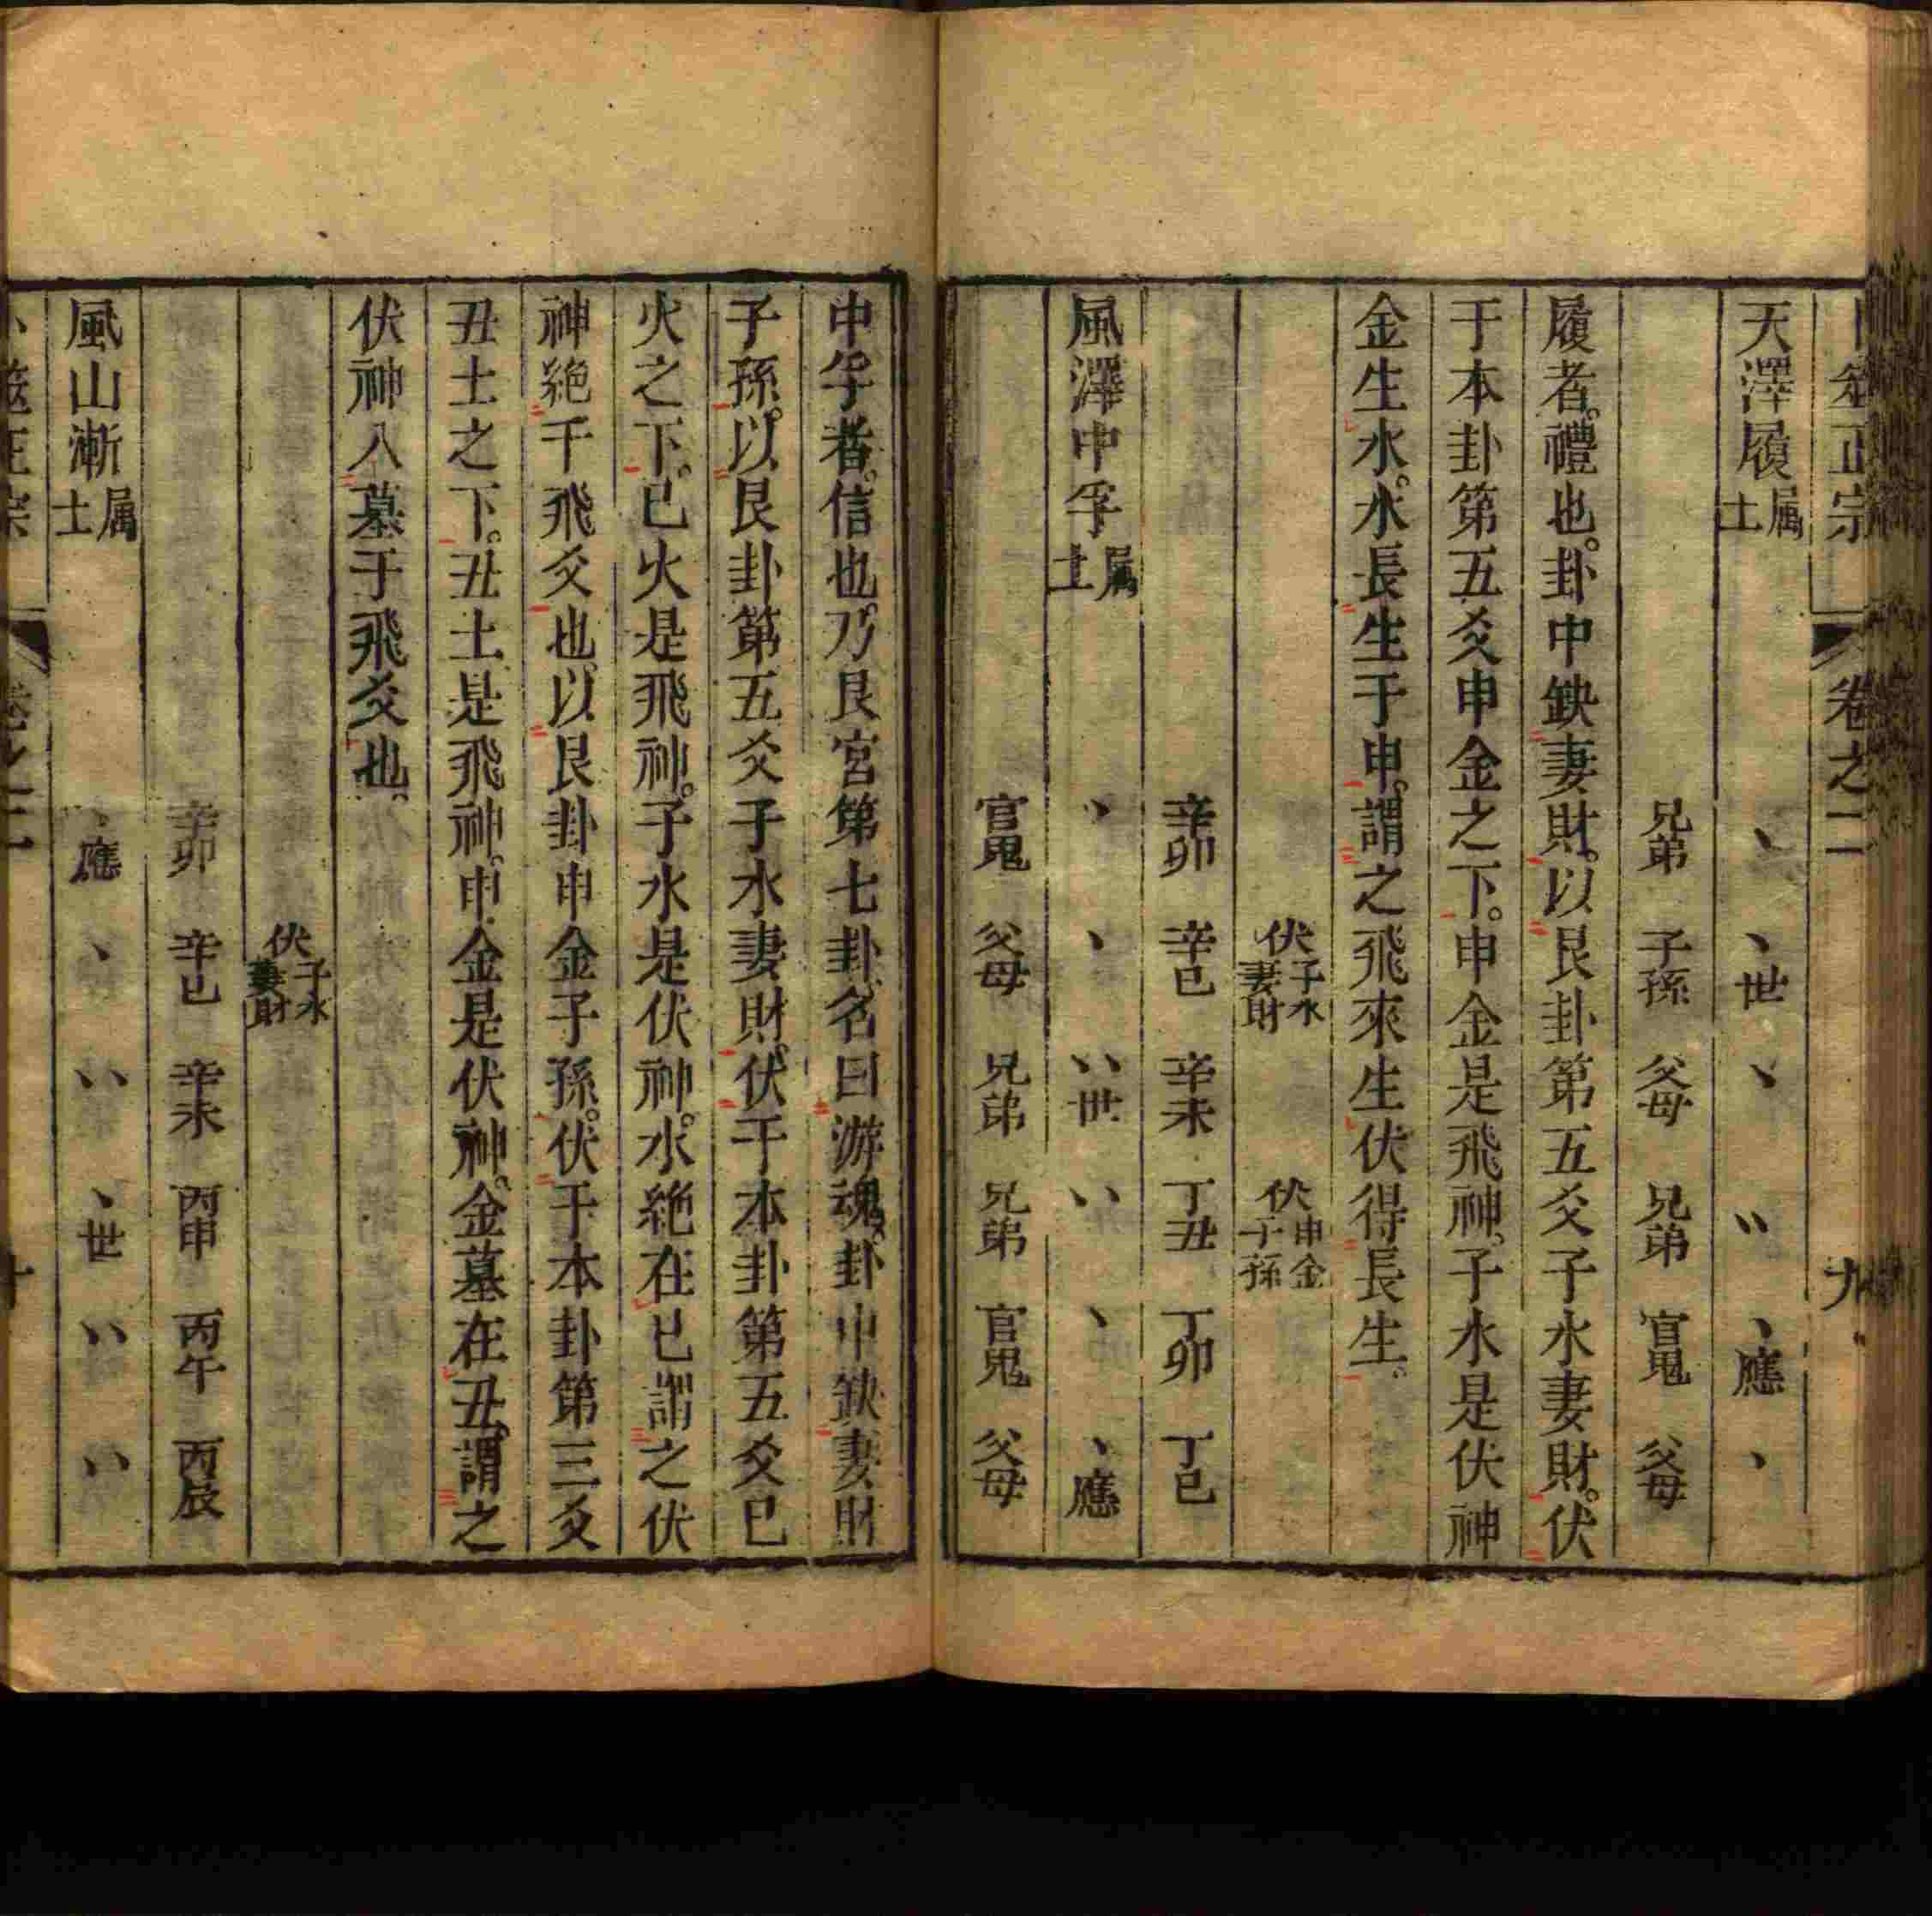 卜筮正宗 卷之二 九
天澤履 属土 、 、世 、 〃 、應 、
兄弟 子孫 父母 兄弟 官鬼 父母
履者。禮也。卦中缺妻財。以艮卦第五爻子水妻財。伏
于本卦第五爻申金之下。申金是飛神。子水是伏神
金生水。水長生于申。謂之飛來生伏得長生。
伏子水妻財 伏申金子孫
辛卯 辛巳 辛未 丁丑 丁卯 丁巳
風澤中孚 属土 、 、 〃世 〃 、 、應
官鬼 父母 兄弟 兄弟 官鬼 父母
中孚者。信也。乃艮宮第七卦。名曰游魂。卦中缺妻財
子孫。以艮卦第五爻子水妻財。伏于本卦第五爻巳
火之下。巳火是飛神。子水是伏神。水絕在巳謂之伏
神絕于飛爻也。以艮卦申金子孫。伏于本卦第三爻
丑土之下。丑土是飛神。申金是伏神。金墓在丑。謂之
伏神入墓于飛爻也。
伏子水妻財
辛卯 辛巳 辛未 丙申 丙午 丙辰
風山漸 属土 、應 、 〃 、世 〃 〃
卜筮正宗 卷之二 十